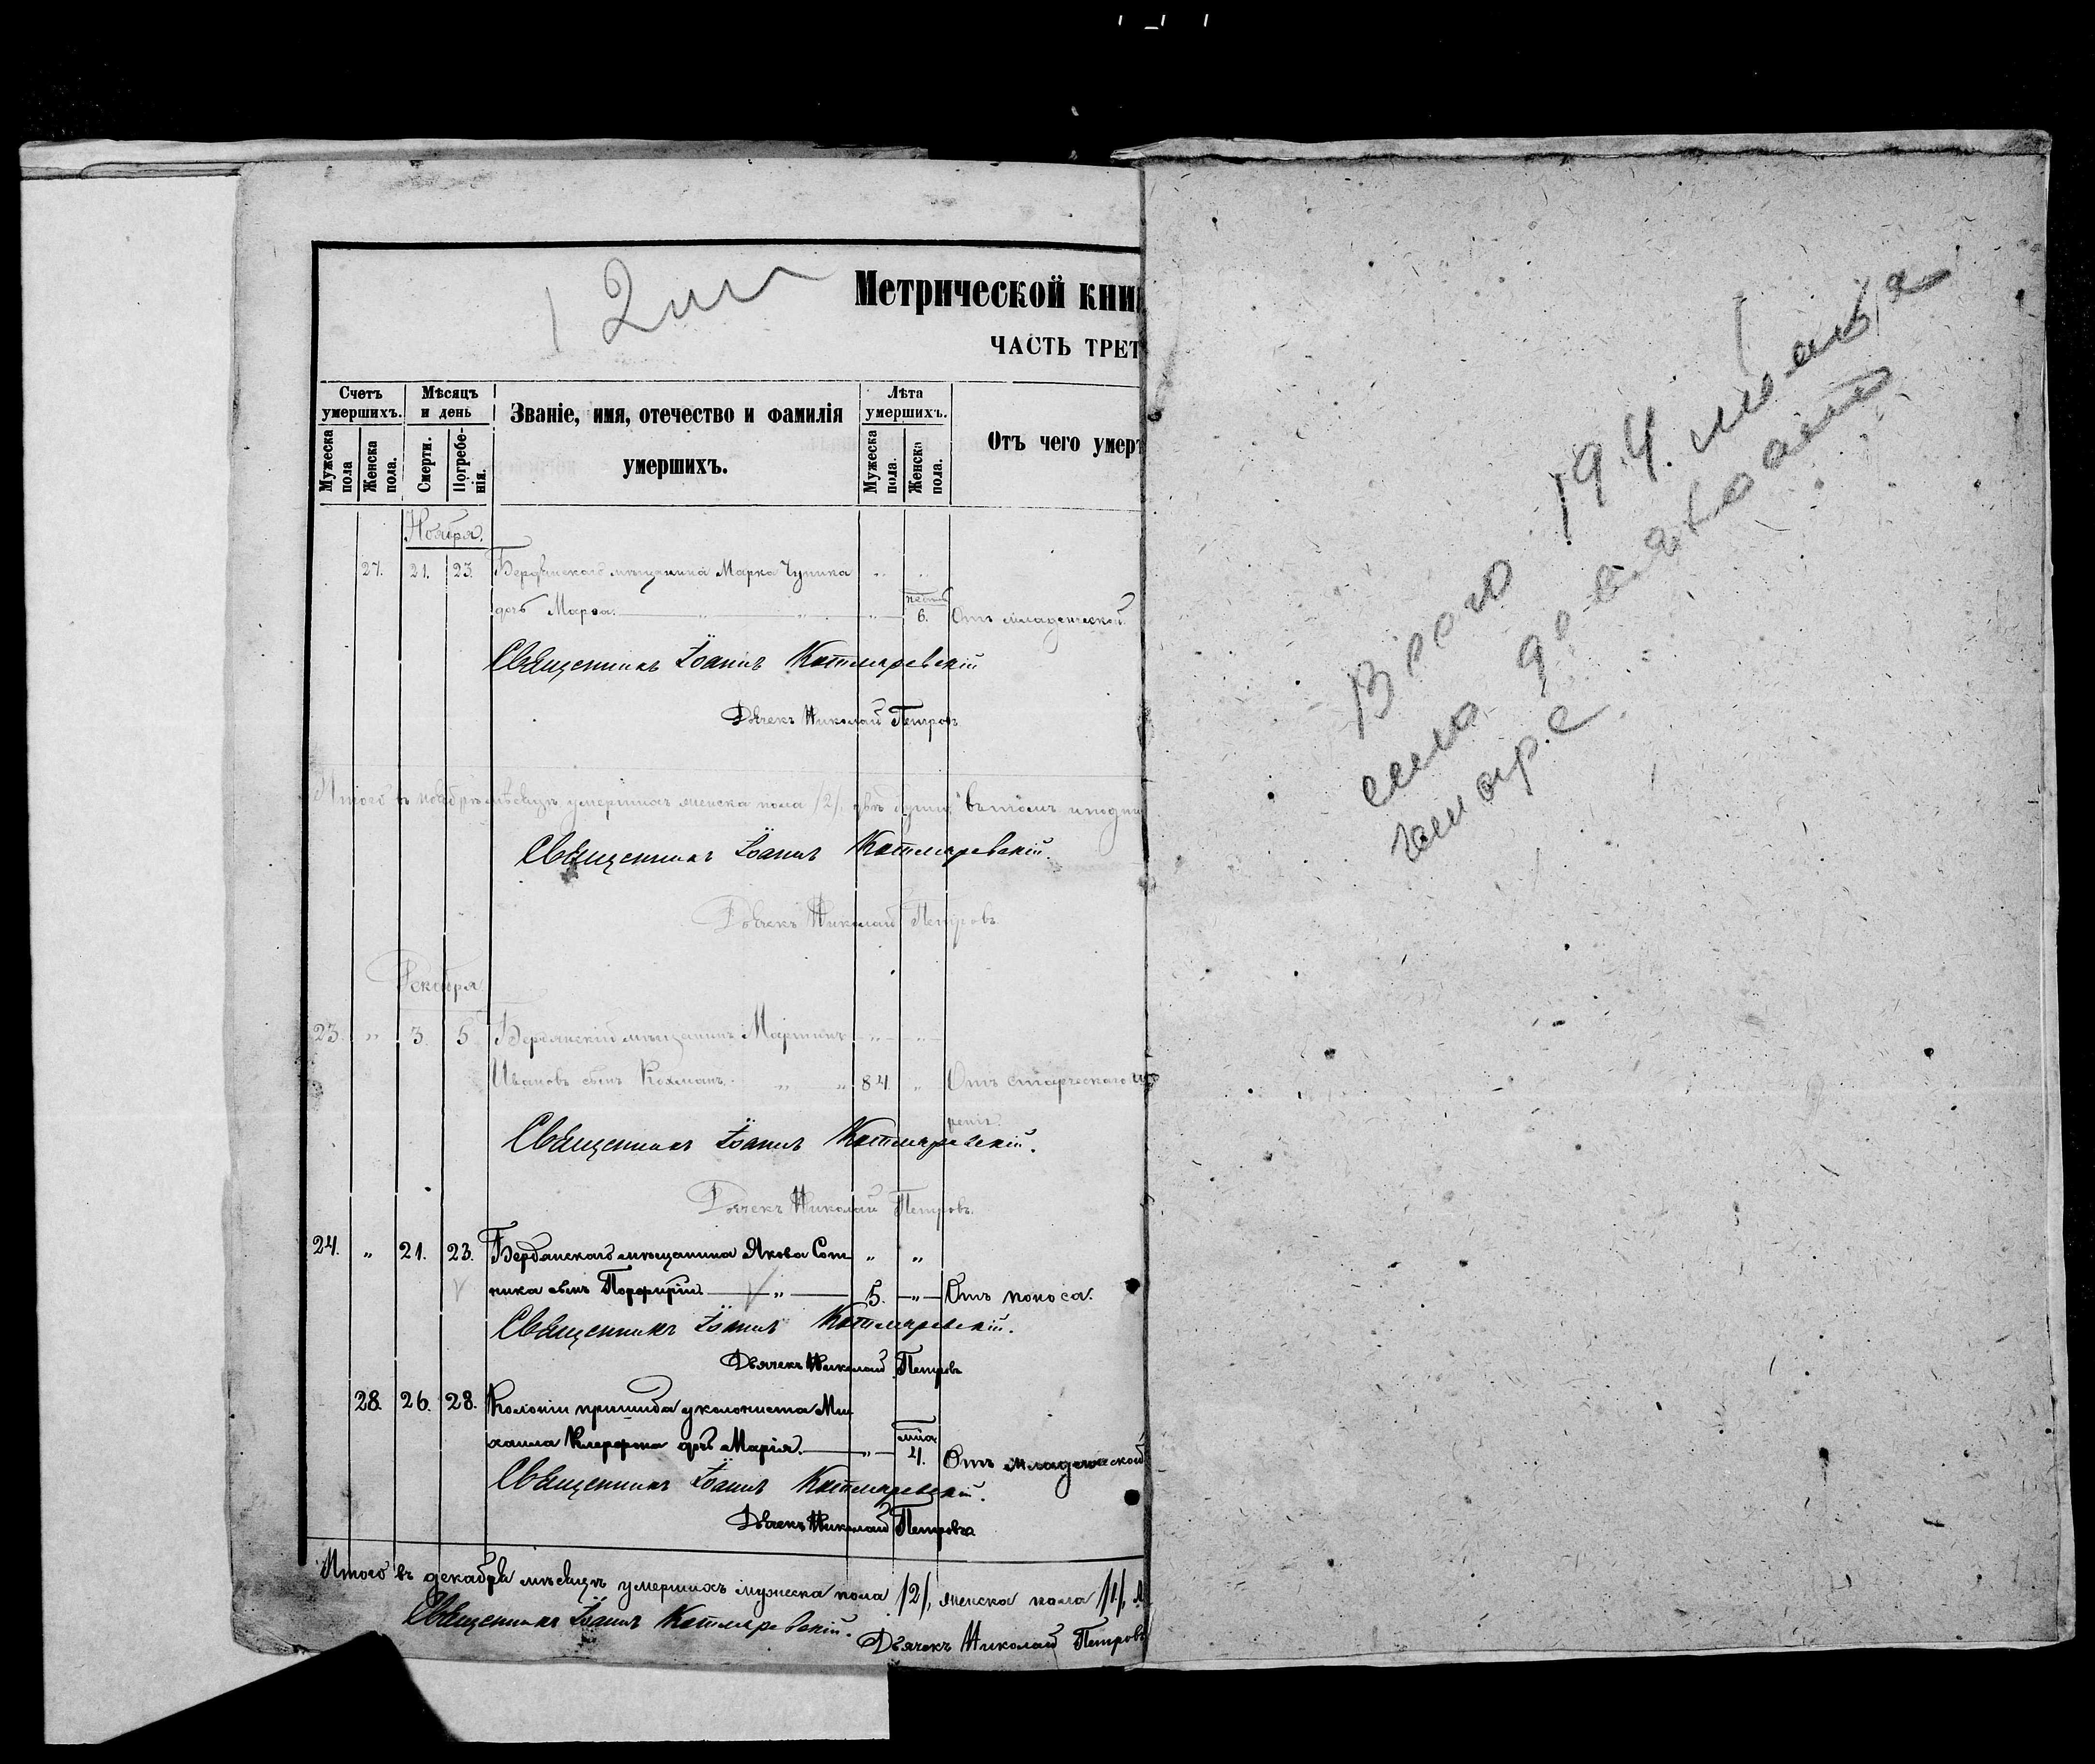 Метрической книг
ЧАСТЬ ТРЕТ
Счетъ умершихъ.
Мѣсяцъ и день
Званіе, имя, отечество и фамилія умершихъ.
Лѣта умершихъ.
Отъ чего умер
Мужеска пола
Женска пола.
Смерти.
Погребенія.
Мужеска пола.
Женска пола.
Ноября.
27. 21. 23. Бердянскаго мѣщанина Марка Чупика
дочь Марѳа. 6. Отъ младенческой
Священникъ Іоаннъ Котляревскій
Дьячекъ Николай Петровъ
Итого въ ноябрѣ мѣсяцѣ умершихъ женска пола /2/ двѣ души въ томъ и подпи
Священникъ Іоаннъ Котляревскій.
Дьячекъ Николай Петровъ
Декабря
23. „ 3. 5. Бердянскій мѣщанинъ Мартинъ
Ивановъ сынъ Кохманъ. 84 „ Отъ старческаго
Священникъ Іоаннъ Котляревскій.
Дьячекъ Николай Петровъ.
24. „ 21. 23. Бердянскаго мѣщанина Якова Сот
ника сынъ Порфирій. 5. „ Отъ поноса.
Священникъ Іоаннъ Котляревскій.
Дьячекъ Николай Петровъ
28. 26. 28. Колоніи пришиба у колониста Ми
хаила дочь Марія. „ 4. Отъ младенческой
Священникъ Іоаннъ Котляревскій.
Дьячекъ Николай Петровъ
Итого въ декабрѣ мѣсяцѣ умершихъ мужеска пола /2/, женска пола /1/,
Священникъ Іоаннъ Котляревскій.
Дьячекъ Николай Петровъ
Всего 194. листа
сто девяносто
четыре